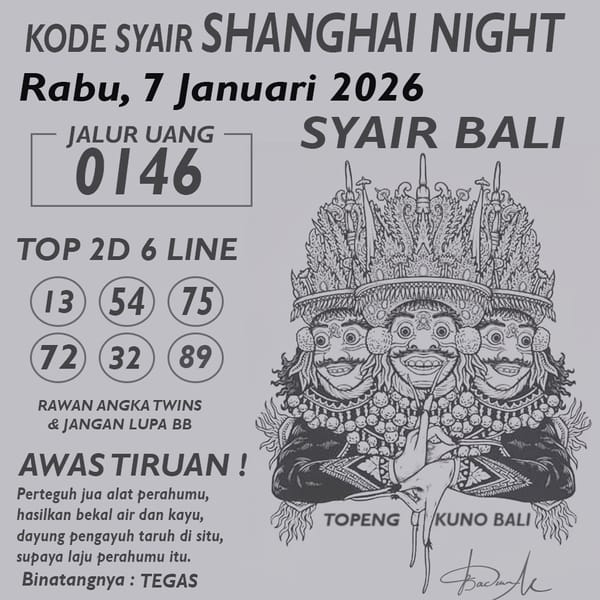 KODE SYAIR SHANGHAI NIGHT
Rabu, 7 Januari 2026
JALUR UANG
0146
SYAIR BALI
TOP 2D 6 LINE
13 54 75
72 32 89
RAWAN ANGKA TWINS
& JANGAN LUPA BB
AWAS TIRUAN !
Perteguh jua alat perahumu,
hasilkan bekal air dan kayu,
dayung pengayuh taruh di situ,
supaya laju perahumu itu.
Binatangnya : TEGAS
TOPENG KUNO BALI